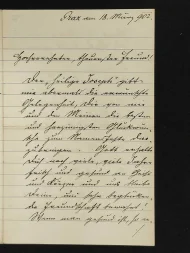 Graz am 18. März 1902.
Hochverehrter, theuerster Freund!
Der heilige Joseph gibt
mir abermals die erwünschte
Gelegenheit, Dir von mir
und den Meinen die besten
und herzinnigsten Glückwün-
sche zum Namensfeste dar-
zubringen. Gott erhalte
Dich noch viele, viele Jahre
frisch und gesund an Geist
und Körper und uns bleibe
Deine, uns so beglückende,
Freundschaft bewahrt!
Wenn man gesund ist, so